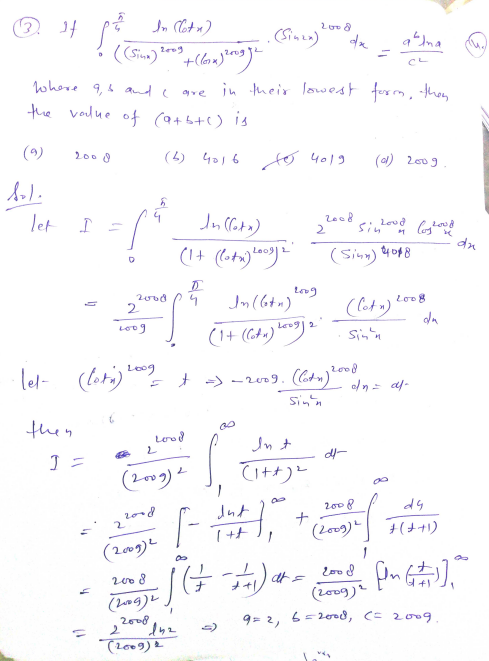 ③. If ∫₀^{π/4} ln(Cotx) / ((Sinx)^{2009} + (Cosx)^{2009})² · (Sin2x)^{2008} dx = a^b lna / c²
where a, b and c are in their lowest form, then
the value of (a+b+c) is
(a) 2008 (b) 4016 (c) 4019 (d) 2009.
Sol.
let I = ∫₀^{π/4} ln(Cotx) / (1+(Cotx)^{2009})² · 2^{2008} Sin^{2008}x Cos^{2008}x / (Sinx)^{4018} dx
= 2^{2008}/2009 ∫₀^{π/4} ln(Cotx)^{2009} / (1+(Cotx)^{2009})² · (Cotx)^{2008} / Sin²x dx
let (Cotx)^{2009} = t ⇒ -2009. (Cotx)^{2008} / Sin²x dx = dt
then
I = 2^{2008}/(2009)² ∫₁^∞ ln t / (1+t)² dt
= 2^{2008}/(2009)² [- lnt / 1+t]₁^∞ + 2008/(2009)² ∫₁^∞ dy / t(t+1)
= 2008/(2009)² ∫₁^∞ (1/t - 1/t+1) dt = 2008/(2009)² [ln(t/t+1)]₁^∞
= 2^{2008} ln2 / (2009)² ⇒ a=2, b=2008, c=2009.